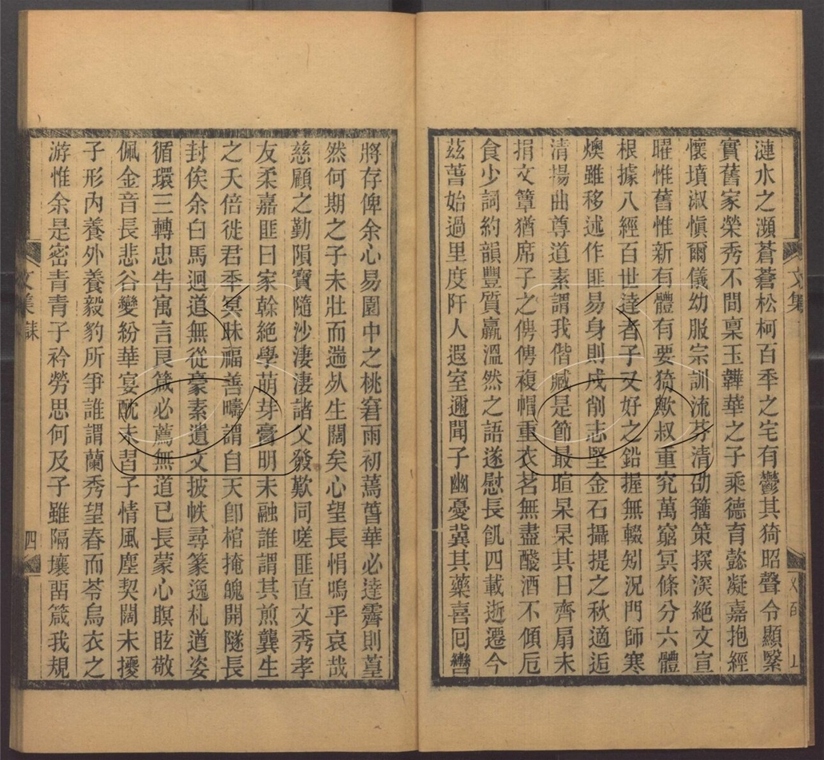 漣水之瀕蒼蒼松柯百秊之宅有鬱其猗昭聲令顯緊
實舊家榮秀不問稟玉韡華之子乘德育懿凝嘉抱經
懷墳淑慎爾儀幼服宗訓流芬清劭籀策探溟絕文宣
曜惟舊惟新有體有要猗歟叔重究萬窮冥條分六體
根據八經百世達者子又好之鉛握無輟矧況門師寒
燠雖移述作匪易身則戍削志堅金石攝提之秋適逅
清揚曲尊道素謂我偕臧是節最暄杲杲其日齊扇未
捐文簟猶席子之傳傳複帽重衣茗無盡醆酒不傾卮
食少詞約韻豐質羸溫然之語遂慰長飢四載逝遷今
茲萅始過里度阡人遐室邇聞子幽憂冀其藥喜囘轡
將存俾余心易園中之桃窘雨初蔫萅華必達霽則萱
然何期之子未壯而遄死生闊矣心望長悁嗚乎哀哉
慈顧之勤隕寶隨沙淒淒諸父發歎同嗟匪直文秀孝
友柔嘉匪曰家榦絕學萌芽膏明未融誰謂其煎龔生
之夭倍徙君秊冥昧福善疇謂自天卽棺掩魄開隧長
封俟余白馬迴道無從豪素遺文披帙尋篆逸札道姿
循環三轉忠告寓言艮箴必薦無道已長蒙心瞑眩敬
佩金音長悲谷變紛華宴酖未習子情風塵契闊未擾
子形內養外養毅豹所爭誰謂蘭秀望春而苓烏衣之
游惟余是密青青子衿勞思何及子雖隔壤畱箴我規
文集
文集
誄
四